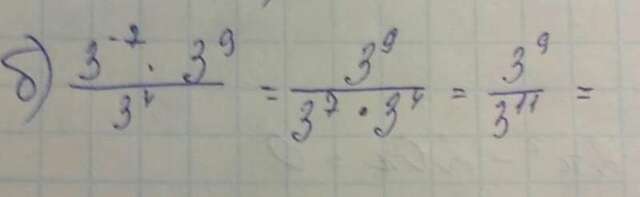 б) (3⁻⁷ · 3⁹)/3⁴ = 3⁹/(3⁷ · 3⁴) = 3⁹/3¹¹ =